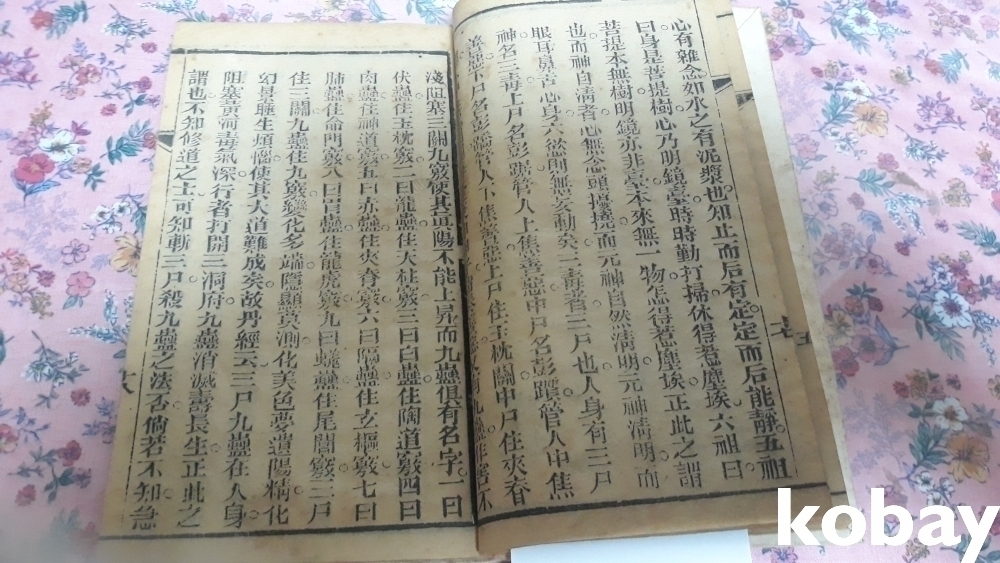 心有雜念如水之有泥漿也知止而后有定定而后能靜五祖
曰身是菩提樹心乃明鏡臺時時勤打掃休得惹塵埃六祖曰
菩提本無樹明鏡亦非臺本來無一物怎得惹塵埃正此之謂
也而神自清者心無念頭擾擾而元神自然清明元神清明而
眼耳鼻舌心身六慾前無妄動矣三毒者三尸也人身有三尸
神名三毒上尸名彭踞管人上焦善惡中尸名彭躓管人中焦
善惡下尸名彭蹻管人下焦善惡上尸住玉枕關中尸住夾脊
淺阻塞三關九竅使其真陽不能上昇而九蠱俱有名字一曰
伏蠱住玉枕竅二曰龍蠱住天柱竅三曰白蠱住陶道竅四曰
肉蠱住神道竅五曰赤蠱住夾脊竅六曰隔蠱住玄樞竅七曰
肺蠱住命門竅八曰胃蠱住龍虎竅九曰蜣蠱住尾閭竅三尸
住三關九蠱住九竅變化多端隱顯莫測化美色夢遺陽精化
幻景睡生煩惱使其大道難成矣故丹經云三尸九蠱在人身
阻塞黃河毒氣深行者打開三洞府九蠱消滅壽長生正此之
謂也不知修道之士可知斬三尸殺九蠱之法否倘若不知急
六
kobay